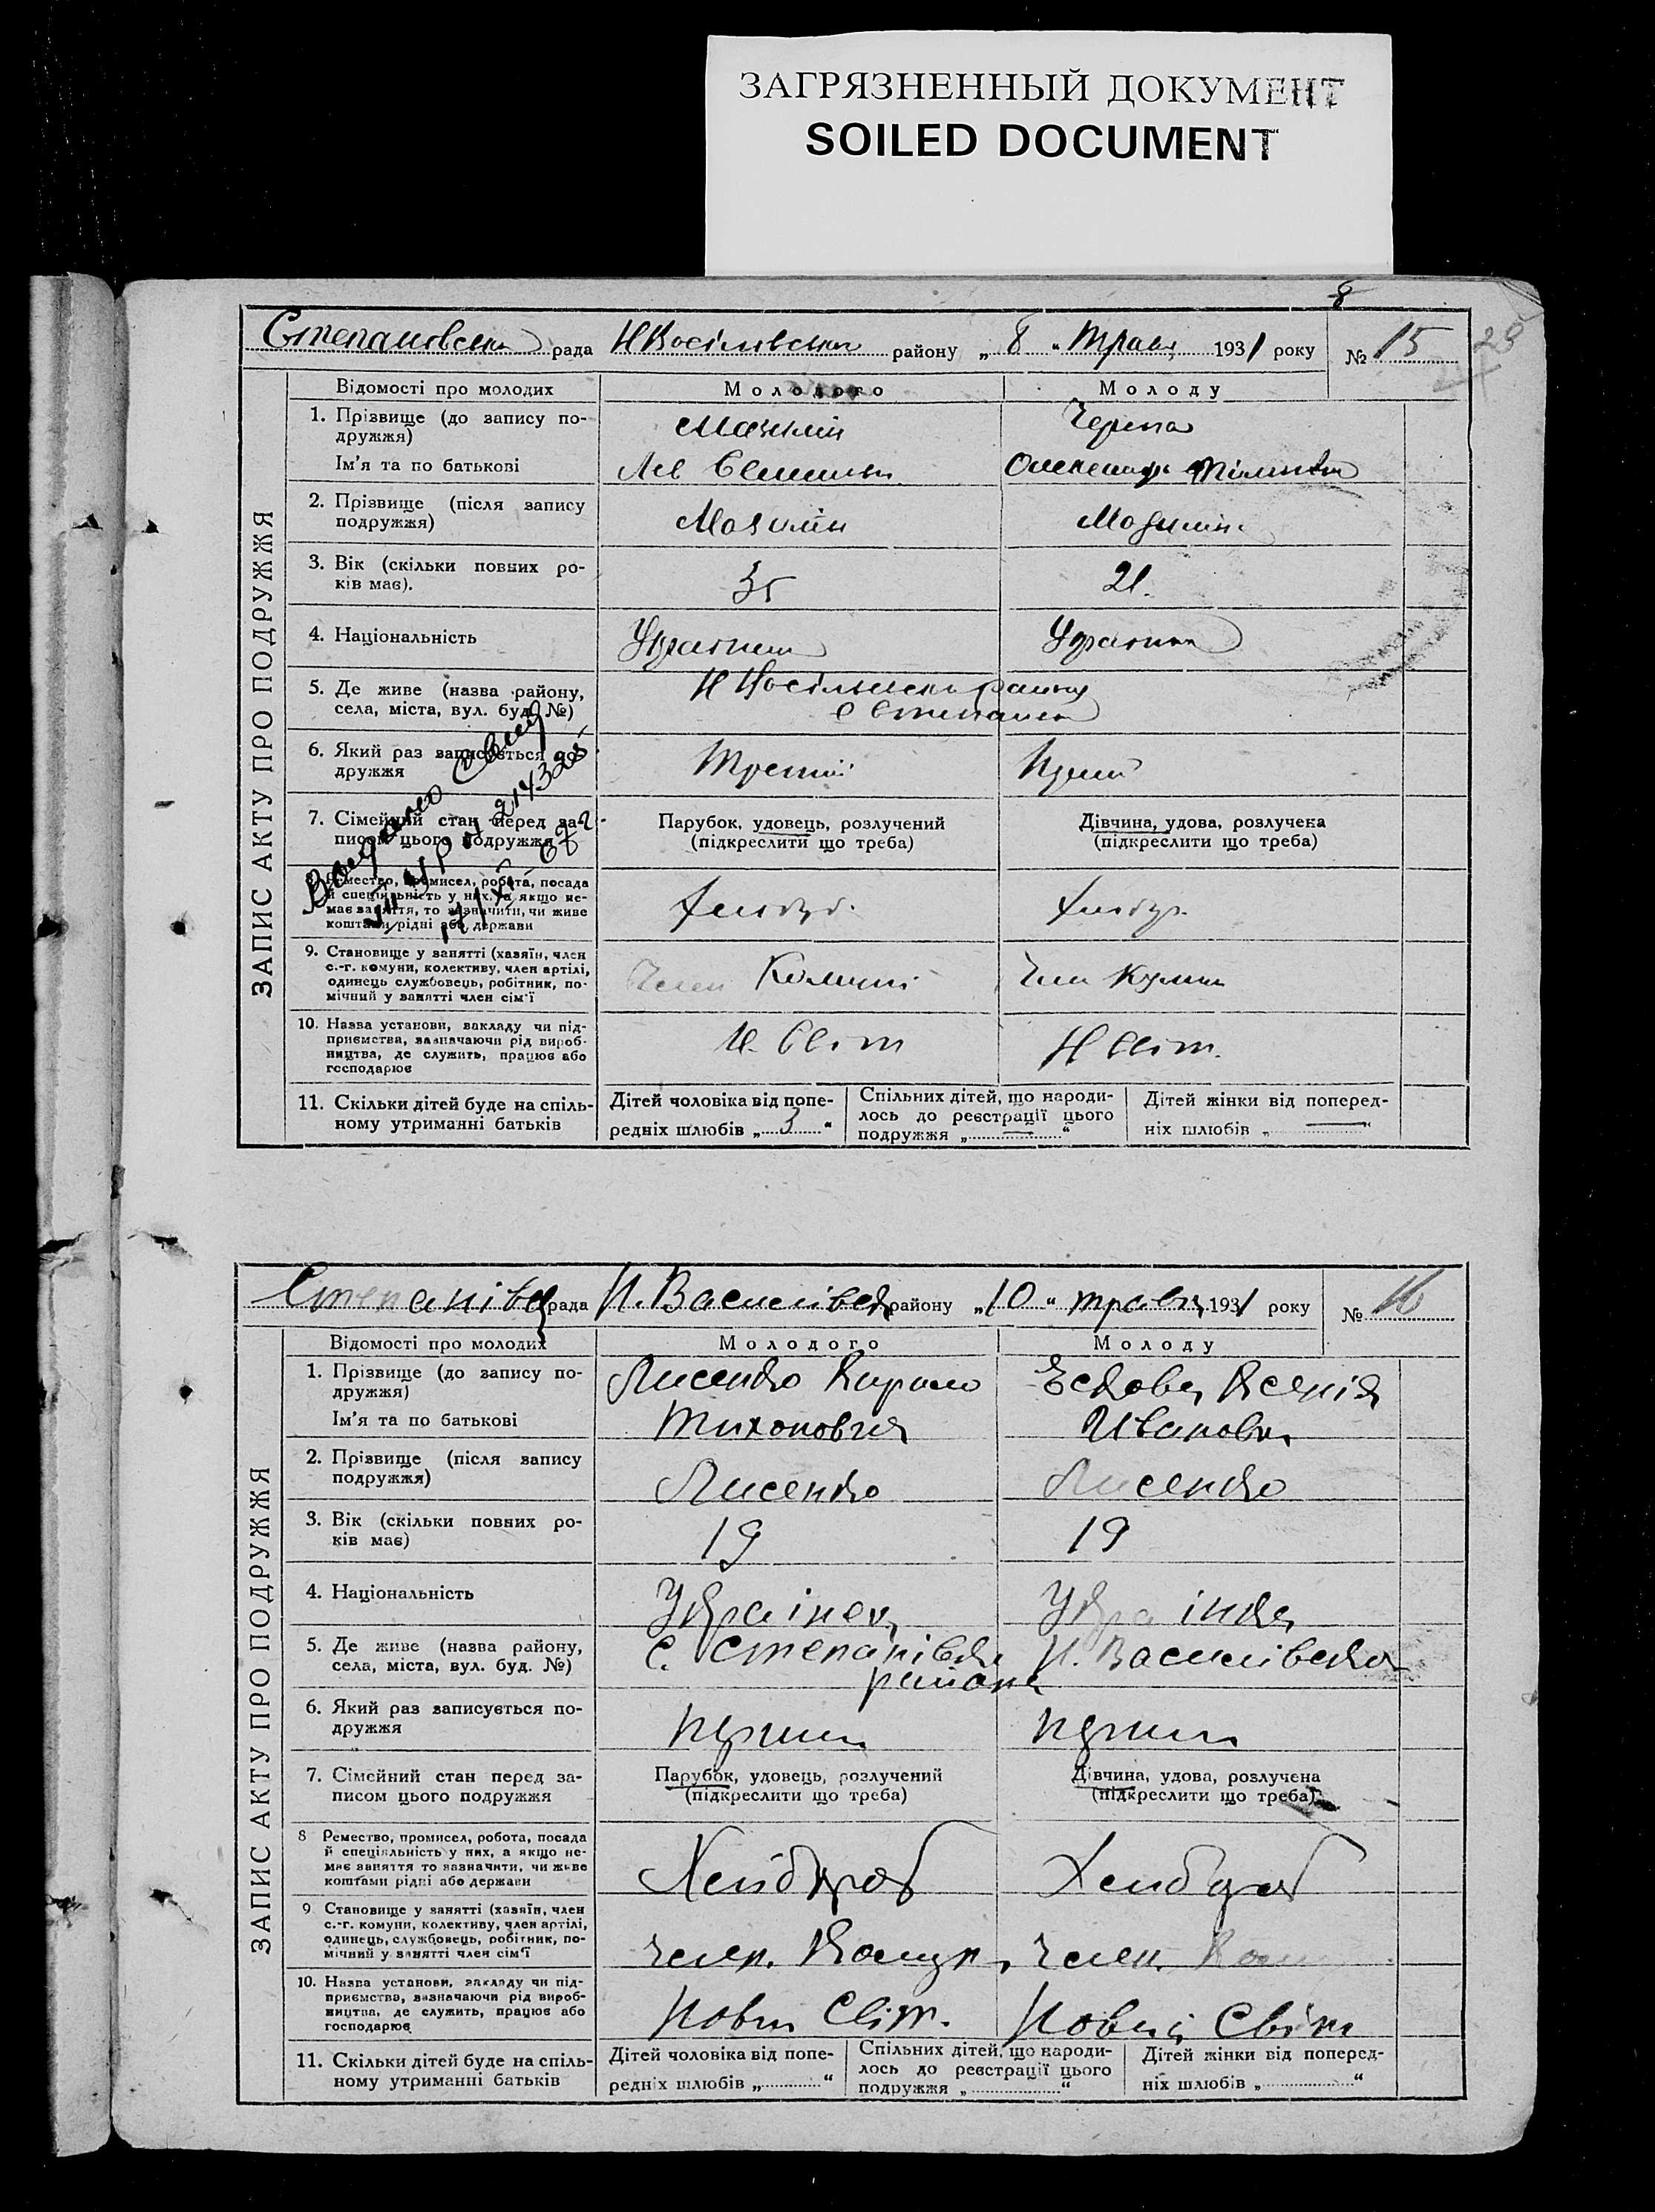 ЗАГРЯЗНЕННЫЙ ДОКУМЕНТ
SOILED DOCUMENT
8
Степановська рада Н Васілівська району „ 8 “ Трав 1931 року № 15 25
ЗАПИС АКТУ ПРО ПОДРУЖЖЯ
Відомості про молодих Молодого Молоду
1. Прізвище (до запису по-
дружжя) Черепа
Ім'я та по батькові Лев Олександр
2. Прізвище (після запису
подружжя) Мазилін Мазилін
3. Вік (скільки повних ро-
ків має). 35 21.
4. Національність
5. Де живе (назва району,
села, міста, вул. буд. №)
6. Який раз записується по-
дружжя Третій
7. Сімейний стан перед за-
писом цього подружжя
Парубок, удовець, розлучений
(підкреслити що треба)
Дівчина, удова, розлучена
(підкреслити що треба)
Видано свид
8. Ремество, промисел, робота, посада
й спеціяльність у них, а якщо не-
має заняття, то зазначити, чи живе
коштами рідні або держави
9. Становище у занятті (хазяїн, член
с.-г. комуни, колективу, член артілі,
одинець службовець, робітник, по-
мічний у занятті член сім'ї
Член Комуни Член Комуни
10. Назва установи, закладу чи під-
приємства, зазначаючи рід вироб-
ництва, де служить, працює або
господарює
Н. Світ Н Світ.
11. Скільки дітей буде на спіль-
ному утриманні батьків
Дітей чоловіка від попе-
редніх шлюбів „ 3 “
Спільних дітей, що народи-
лось до реєстрації цього
подружжя „ — “
Дітей жінки від поперед-
ніх шлюбів „ — “
Степанівц рада Н. Василівськ району „ 10 “ травц 1931 року № 16
ЗАПИС АКТУ ПРО ПОДРУЖЖЯ
Відомості про молодих Молодого Молоду
1. Прізвище (до запису по-
дружжя) Лисенко Кирило Єскова Ксенія
Ім'я та по батькові Тихонович Ивановн
2. Прізвище (після запису
подружжя) Лисенко Лисенко
3. Вік (скільки повних ро-
ків має) 19 19
4. Національність Українец Українка
5. Де живе (назва району,
села, міста, вул. буд. №) с. Степанівка Н. Василівська
района
6. Який раз записується по-
дружжя перший перший
7. Сімейний стан перед за-
писом цього подружжя
Парубок, удовець, розлучений
(підкреслити що треба)
Дівчина, удова, розлучена
(підкреслити що треба)
8 Ремество, промисел, робота, посада
й спеціяльність у них, а якщо не-
має заняття то зазначити, чи живе
коштами рідні або держави
Хлібороб Хлібороб
9 Становище у занятті (хазяїн, член
с.-г. комуни, колективу, член артілі,
одинець, службовець, робітник, по-
мічний у занятті член сім'ї
член. Комун член. Ком
10. Назва установи, закладу чи під-
приємства, зазначаючи рід вироб-
ництва, де служить, працює або
господарює
Новий Світ. Новий Світ
11. Скільки дітей буде на спіль-
ному утриманні батьків
Дітей чоловіка від попе-
редніх шлюбів „ “
Спільних дітей, що народи-
лось до реєстрації цього
подружжя „ “
Дітей жінки від поперед-
ніх шлюбів „ “